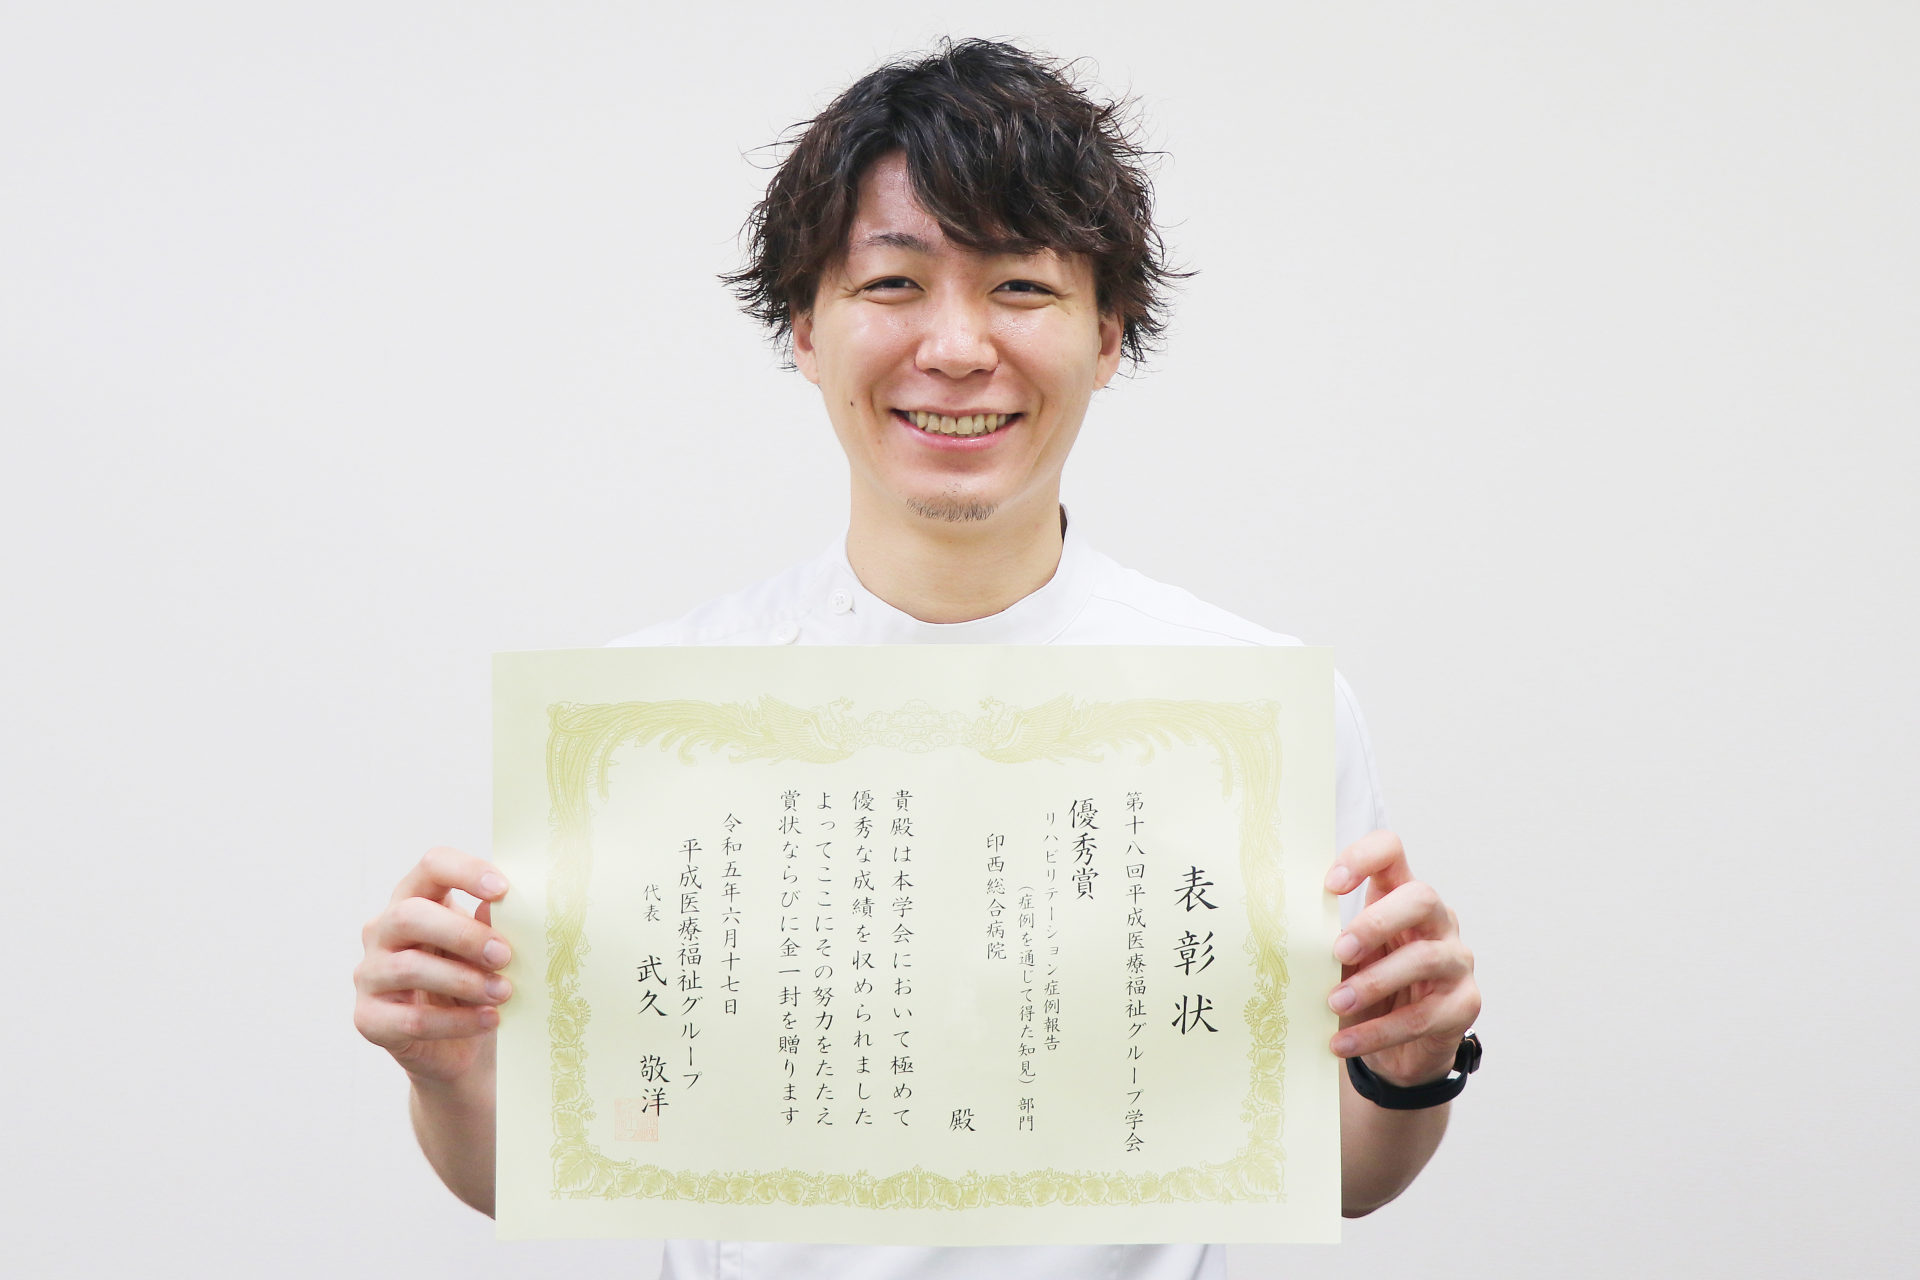 表彰状
第十八回平成医療福祉グループ学会
優秀賞
リハビリテーション症例報告
（症例を通じて得た知見）部門
印西総合病院
殿
貴殿は本学会において極めて
優秀な成績を収められました
よってここにその努力をたたえ
賞状ならびに金一封を贈ります
令和五年六月十七日
平成医療福祉グループ
代表 武久 敬洋